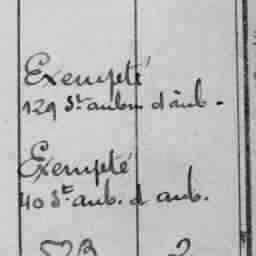 Exempté
129 St aubin d'aub.
Exempté
40 St. aub. d aub.